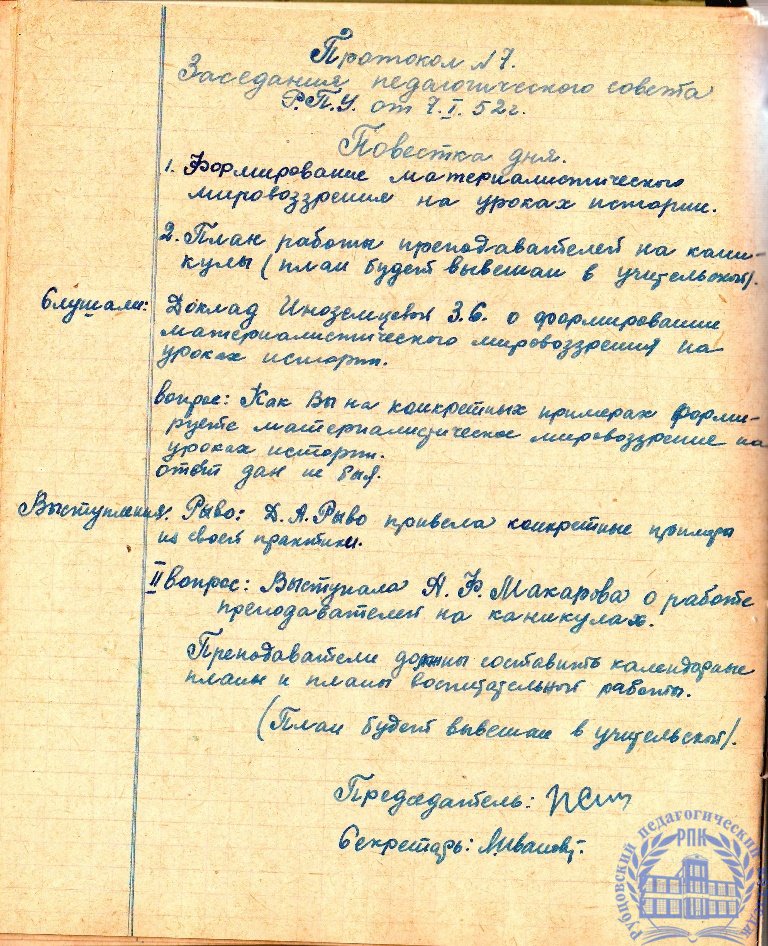 Протокол №7.
Заседания педагогического совета
Р.П.У. от 7.I.52г.
Повестка дня.
1. Формирование материалистического
мировоззрения на уроках истории.
2. План работы преподавателей на кани-
кулы (план будет вывешан в учительской).
Слушали: Доклад Иноземцевой З.С. о формировании
материалистического мировоззрения на
уроках истории.
вопрос: Как Вы на конкретных примерах форми-
руете материалистическое мировоззрение на
уроках истории.
ответ дан не был.
Выступления: Рыво: Д.А.Рыво привела конкретные примеры
из своей практики.
II вопрос: Выступала А.Ф.Макарова о работе
преподавателей на каникулах.
Преподаватели должны составить календарные
планы и планы воспитательной работы.
(План будет вывешан в учительской).
Председатель:
Секретарь: Иванов
РУБЦОВСКИЙ ПЕДАГОГИЧЕСКИЙ КОЛЛЕДЖ
РПК